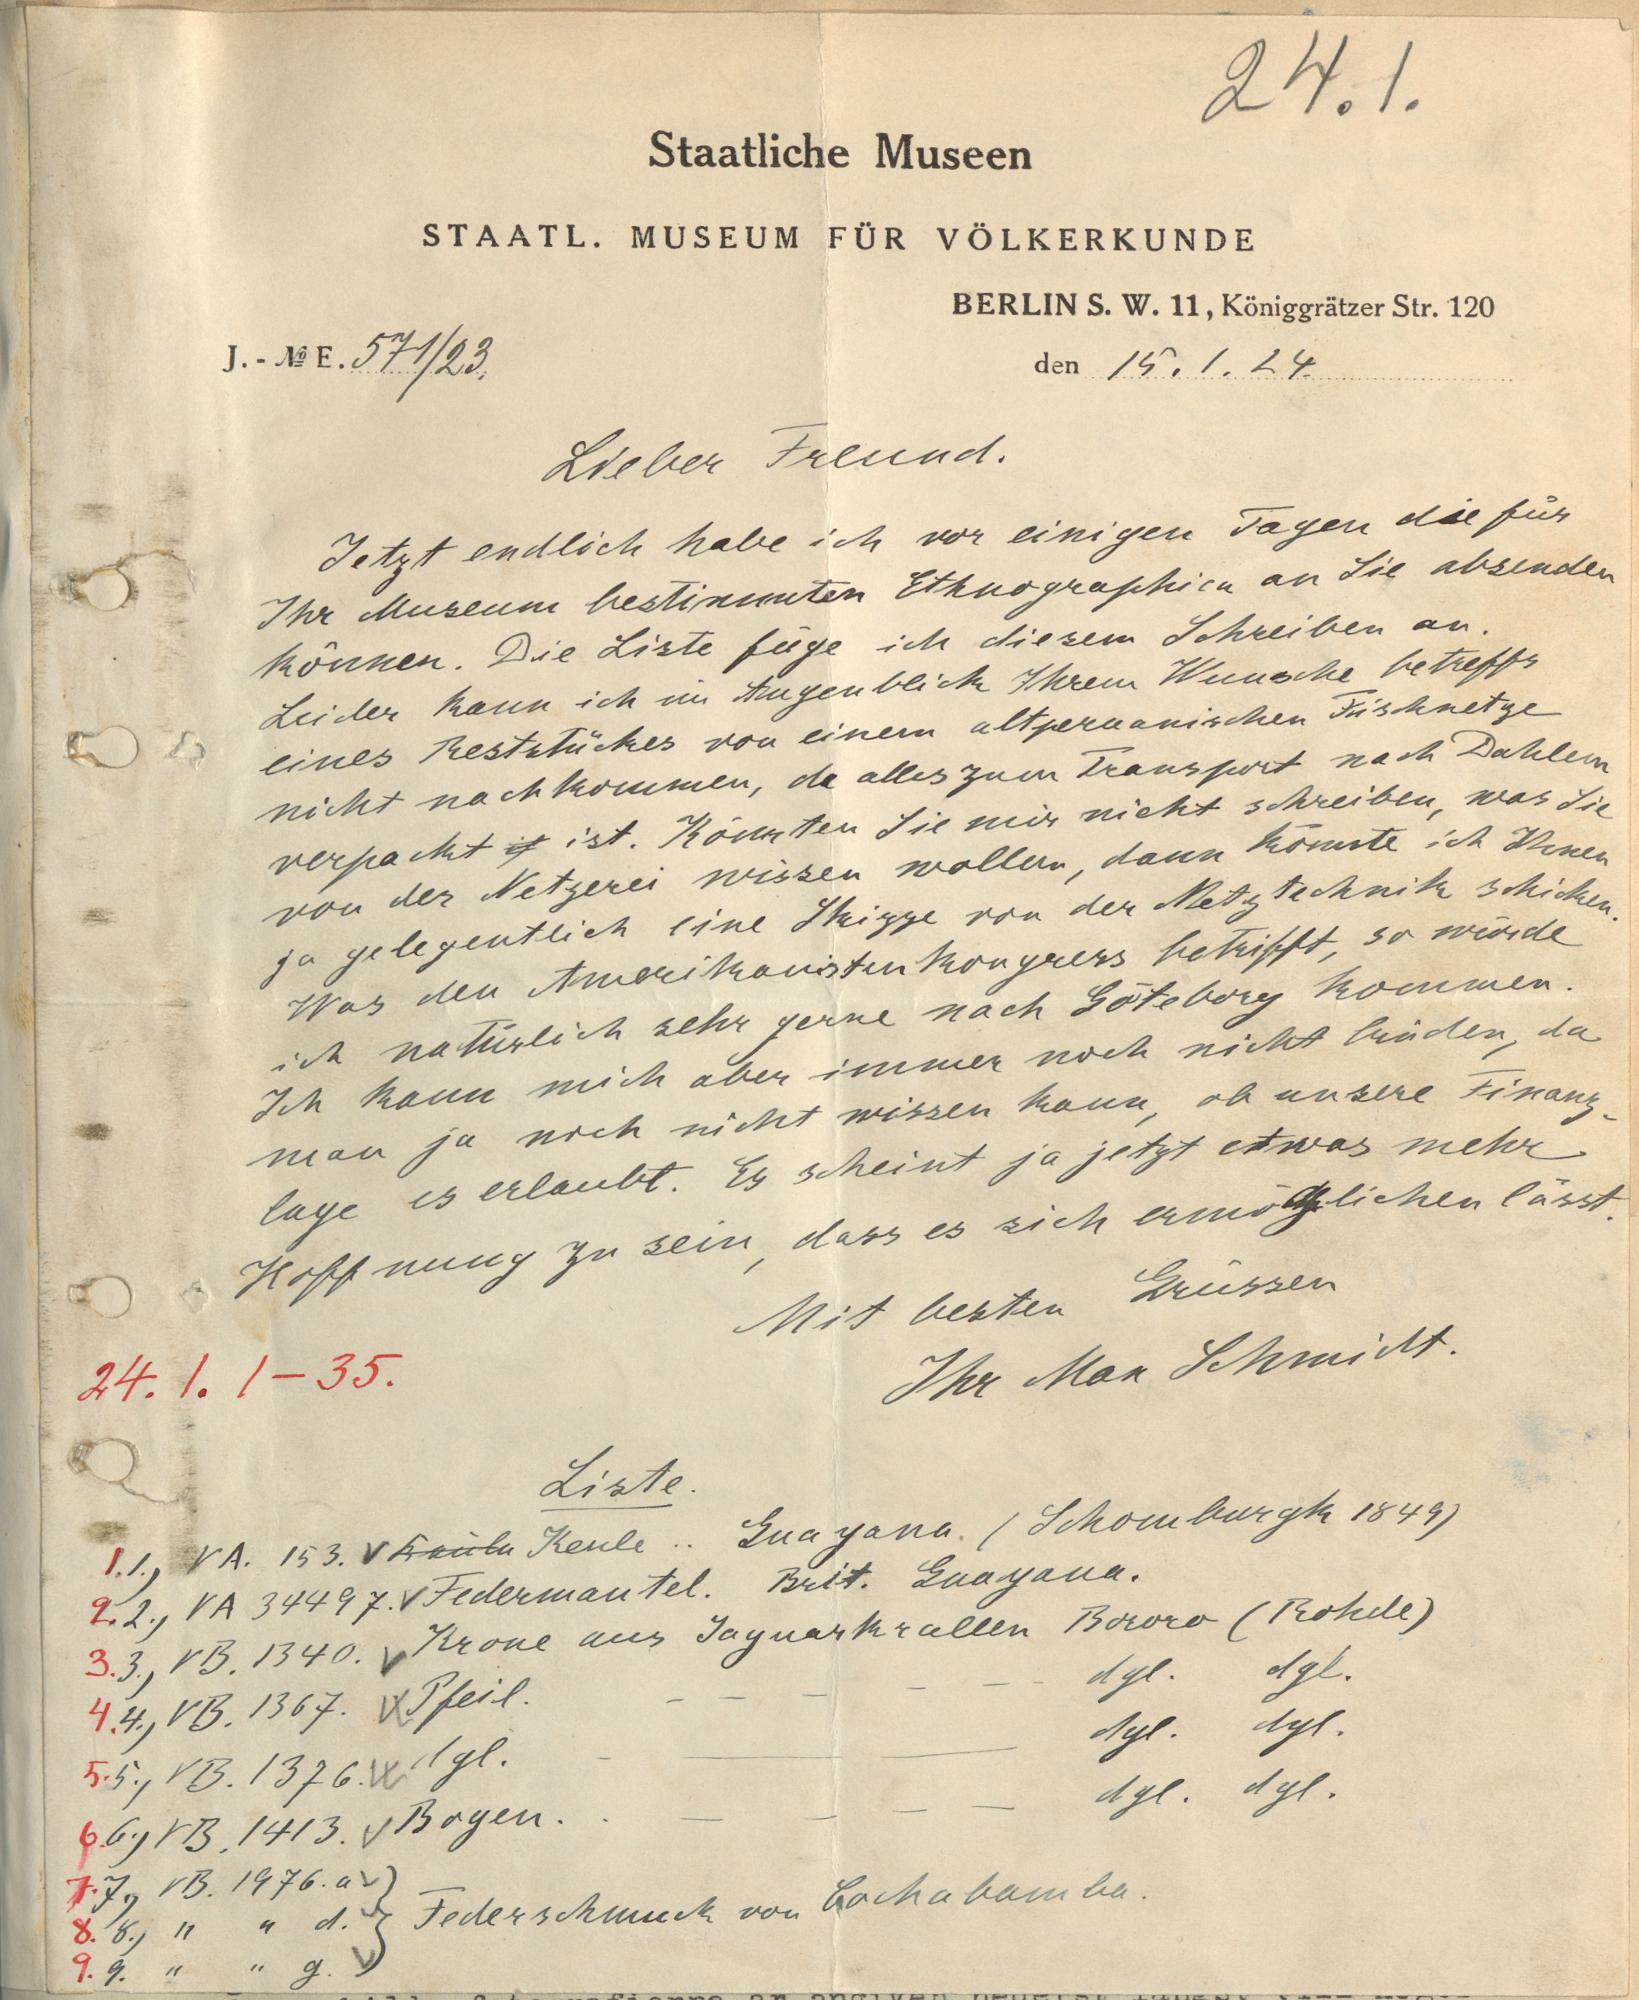 24.1.
Staatliche Museen
STAATL. MUSEUM FÜR VÖLKERKUNDE
BERLIN S. W. 11, Königgrätzer Str. 120
J.-№ E. 571/23.
den 15.1.24.
Lieber Freund.
Jetzt endlich habe ich vor einigen Tagen die für
Ihr Museum bestimmten Ethnographica an Sie absenden
können. Die Liste füge ich diesem Schreiben an.
Leider kann ich im Augenblick Ihrem Wunsche betreffs
eines Reststückes von einem altperuanischen Fischnetze
nicht nachkommen, da alles zum Transport nach Dahlem
verpackt ist. Könnten Sie mir nicht schreiben, was Sie
von der Netzerei wissen wollen, dann könnte ich Ihnen
ja gelegentlich eine Skizze von der Netztechnik schicken.
Was den Amerikanistenkongress betrifft, so würde
ich natürlich sehr gerne nach Göteborg kommen.
Ich kann mich aber immer noch nicht binden, da
man ja noch nicht wissen kann, ob unsere Finanz-
lage es erlaubt. Es scheint ja jetzt etwas mehr
Hoffnung zu sein, dass es sich ermöglichen lässt.
Mit besten Grüssen
Ihr Max Schmidt.
24. 1. 1-35.
Liste.
1. 1., VA. 153. Keule .. Guayana. (Schomburgk 1849)
2. 2., VA 34497. Federmantel. Brit. Guayana.
3. 3., VB. 1340. Krone aus Jaguarkrallen Bororo (Rohde)
4. 4., VB. 1367. Pfeil. - - - - - - dgl. dgl.
5. 5., VB. 1376. dgl. - — — dgl. dgl.
6. 6., VB. 1413. Bogen. . - - - - dgl. dgl.
7. 7., VB. 1976. a
8. 8., " " d. } Federschmuck von Cochabamba.
9. 9. " " g.